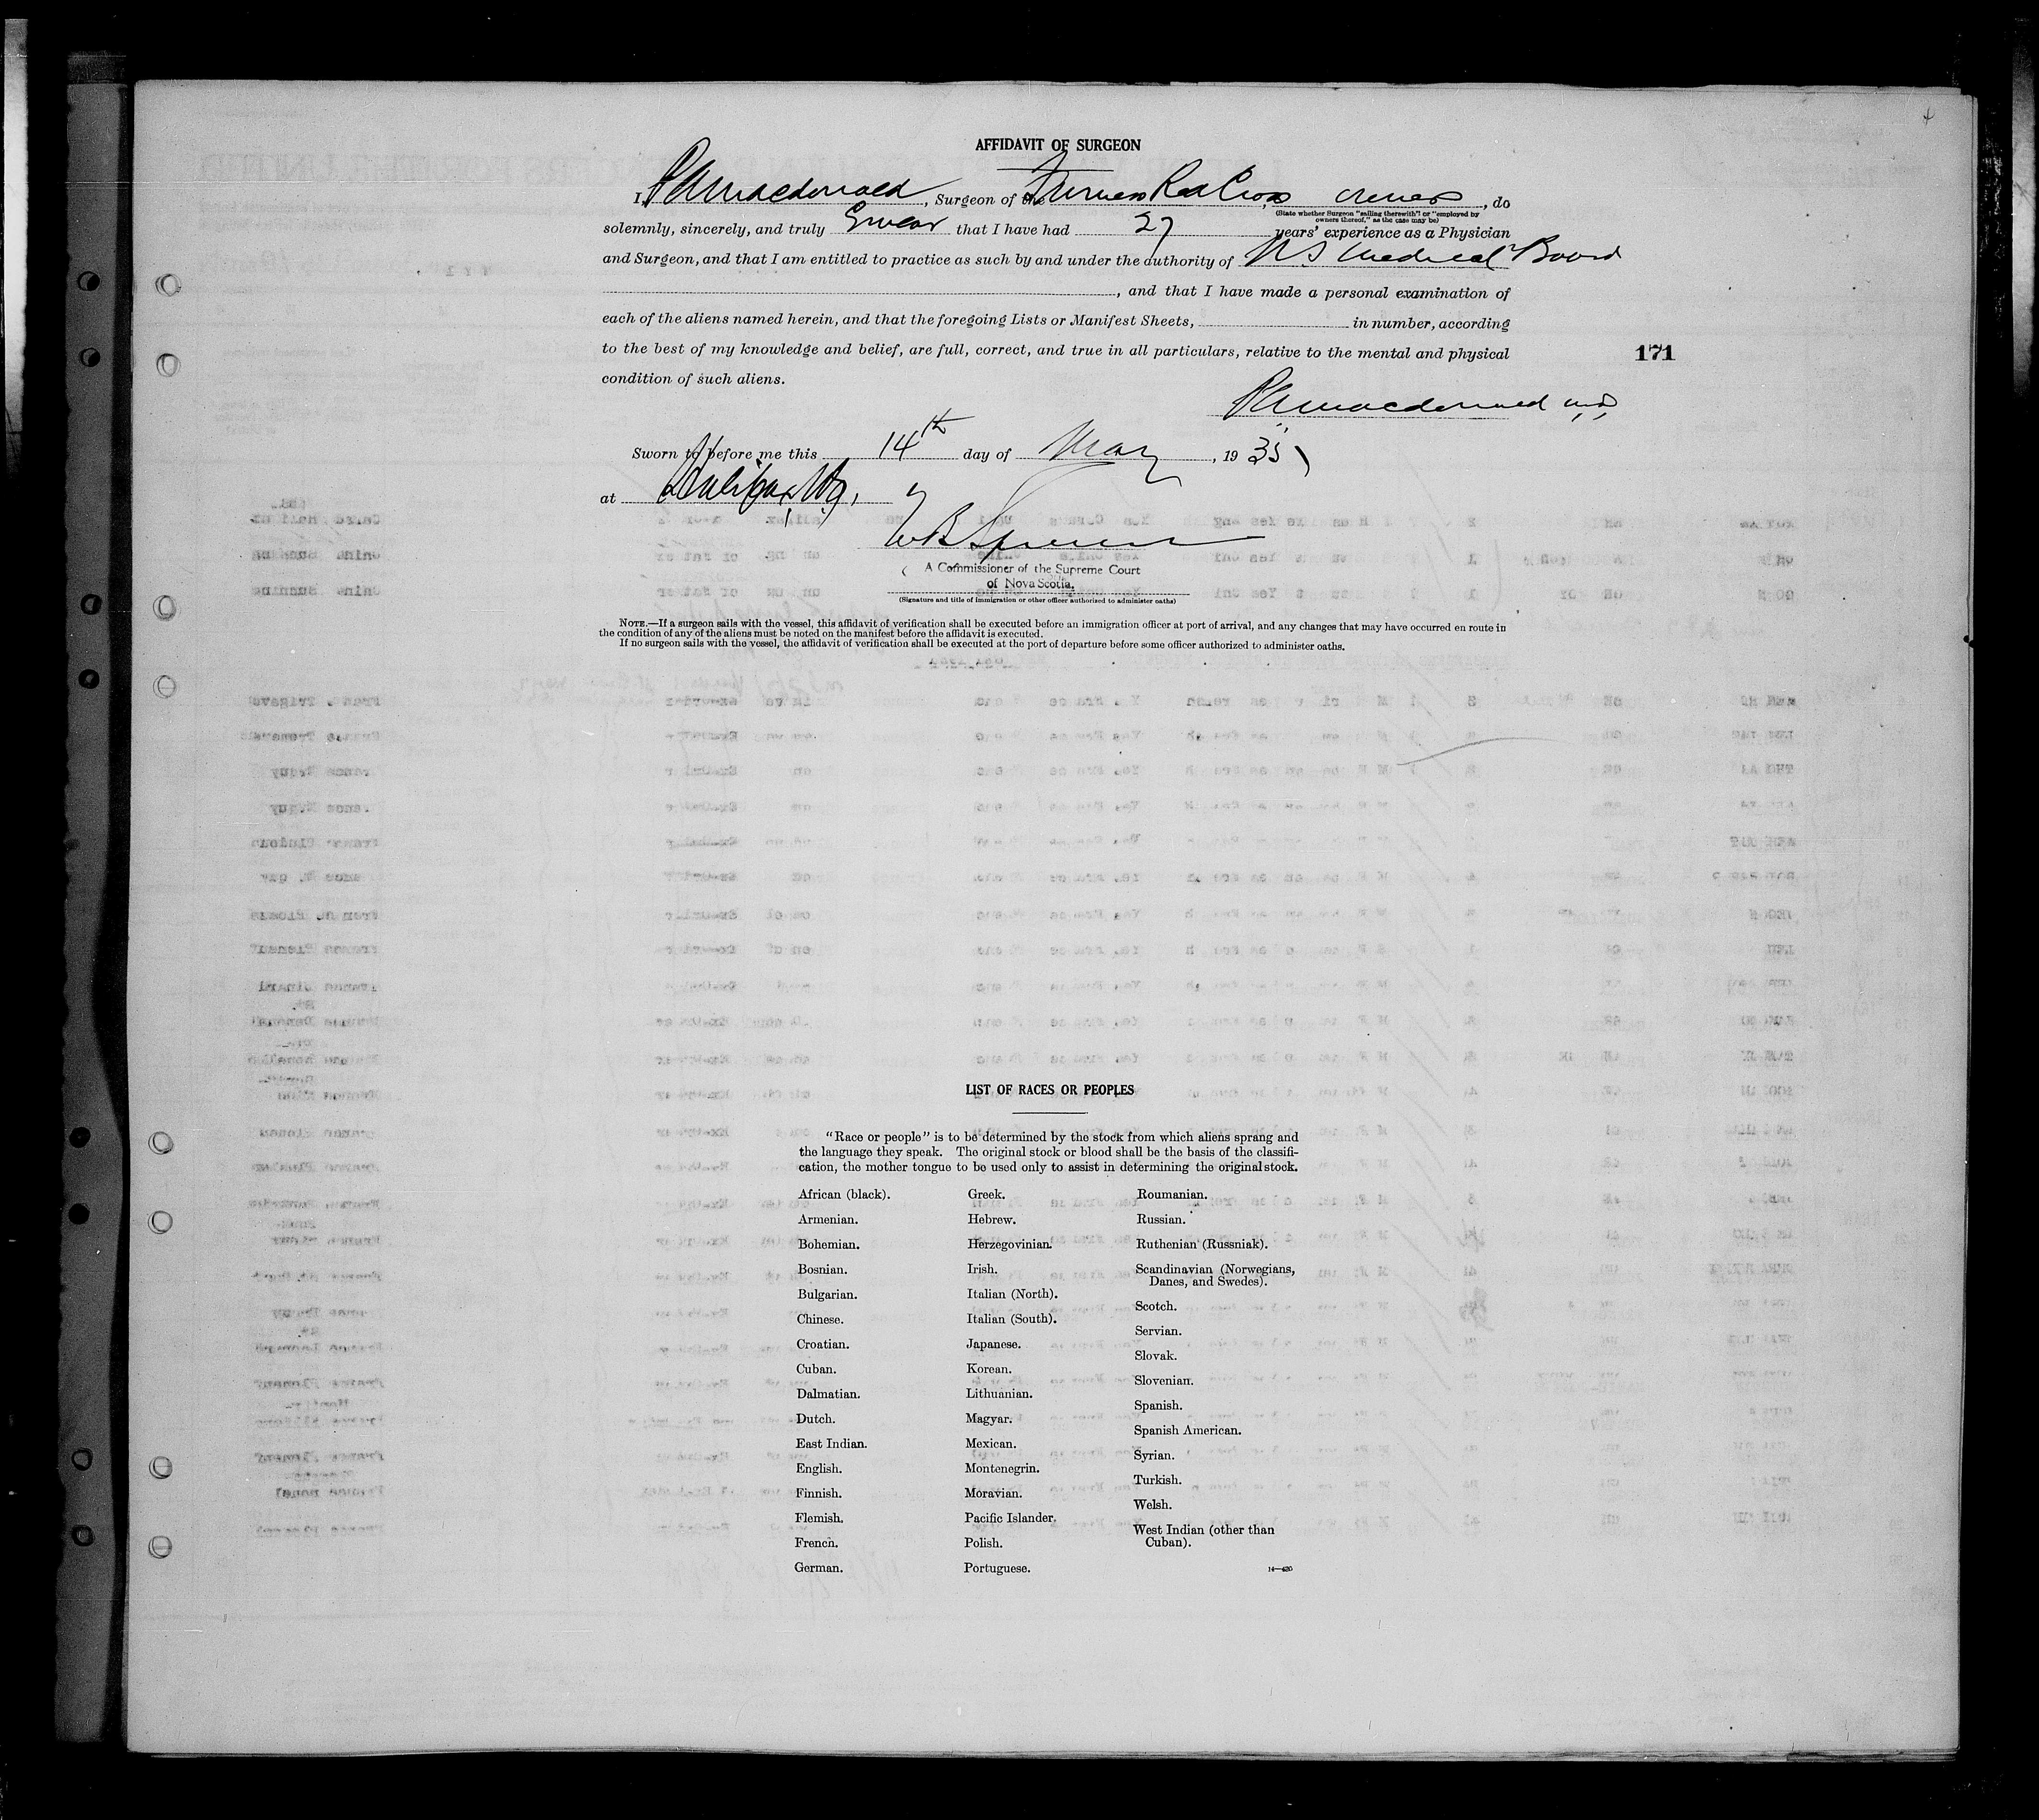 AFFIDAVIT OF SURGEON
I, P A Macdonald, Surgeon of the Furness Red Cross, owners, do
(State whether Surgeon "sailing therewith" or "employed by
owners thereof," as the case may be)
solemnly, sincerely, and truly Swear that I have had 27 years' experience as a Physician
and Surgeon, and that I am entitled to practice as such by and under the authority of N S Medical Board
, and that I have made a personal examination of
each of the aliens named herein, and that the foregoing Lists or Manifest Sheets, in number, according
to the best of my knowledge and belief, are full, correct, and true in all particulars, relative to the mental and physical
171
condition of such aliens.
P A Macdonald M.D.
Sworn to before me this 14th day of May, 1935
at Halifax N.S.
A Commissioner of the Supreme Court
of Nova Scotia.
(Signature and title of immigration or other officer authorized to administer oaths)
NOTE.—If a surgeon sails with the vessel, this affidavit of verification shall be executed before an immigration officer at port of arrival, and any changes that may have occurred en route in
the condition of any of the aliens must be noted on the manifest before the affidavit is executed.
If no surgeon sails with the vessel, the affidavit of verification shall be executed at the port of departure before some officer authorized to administer oaths.
LIST OF RACES OR PEOPLES
"Race or people" is to be determined by the stock from which aliens sprang and
the language they speak. The original stock or blood shall be the basis of the classifi-
cation, the mother tongue to be used only to assist in determining the original stock.
African (black).
Armenian.
Bohemian.
Bosnian.
Bulgarian.
Chinese.
Croatian.
Cuban.
Dalmatian.
Dutch.
East Indian.
English.
Finnish.
Flemish.
French.
German.
Greek.
Hebrew.
Herzegovinian.
Irish.
Italian (North).
Italian (South).
Japanese.
Korean.
Lithuanian.
Magyar.
Mexican.
Montenegrin.
Moravian.
Pacific Islander.
Polish.
Portuguese.
Roumanian.
Russian.
Ruthenian (Russniak).
Scandinavian (Norwegians,
Danes, and Swedes).
Scotch.
Servian.
Slovak.
Slovenian.
Spanish.
Spanish American.
Syrian.
Turkish.
Welsh.
West Indian (other than
Cuban).